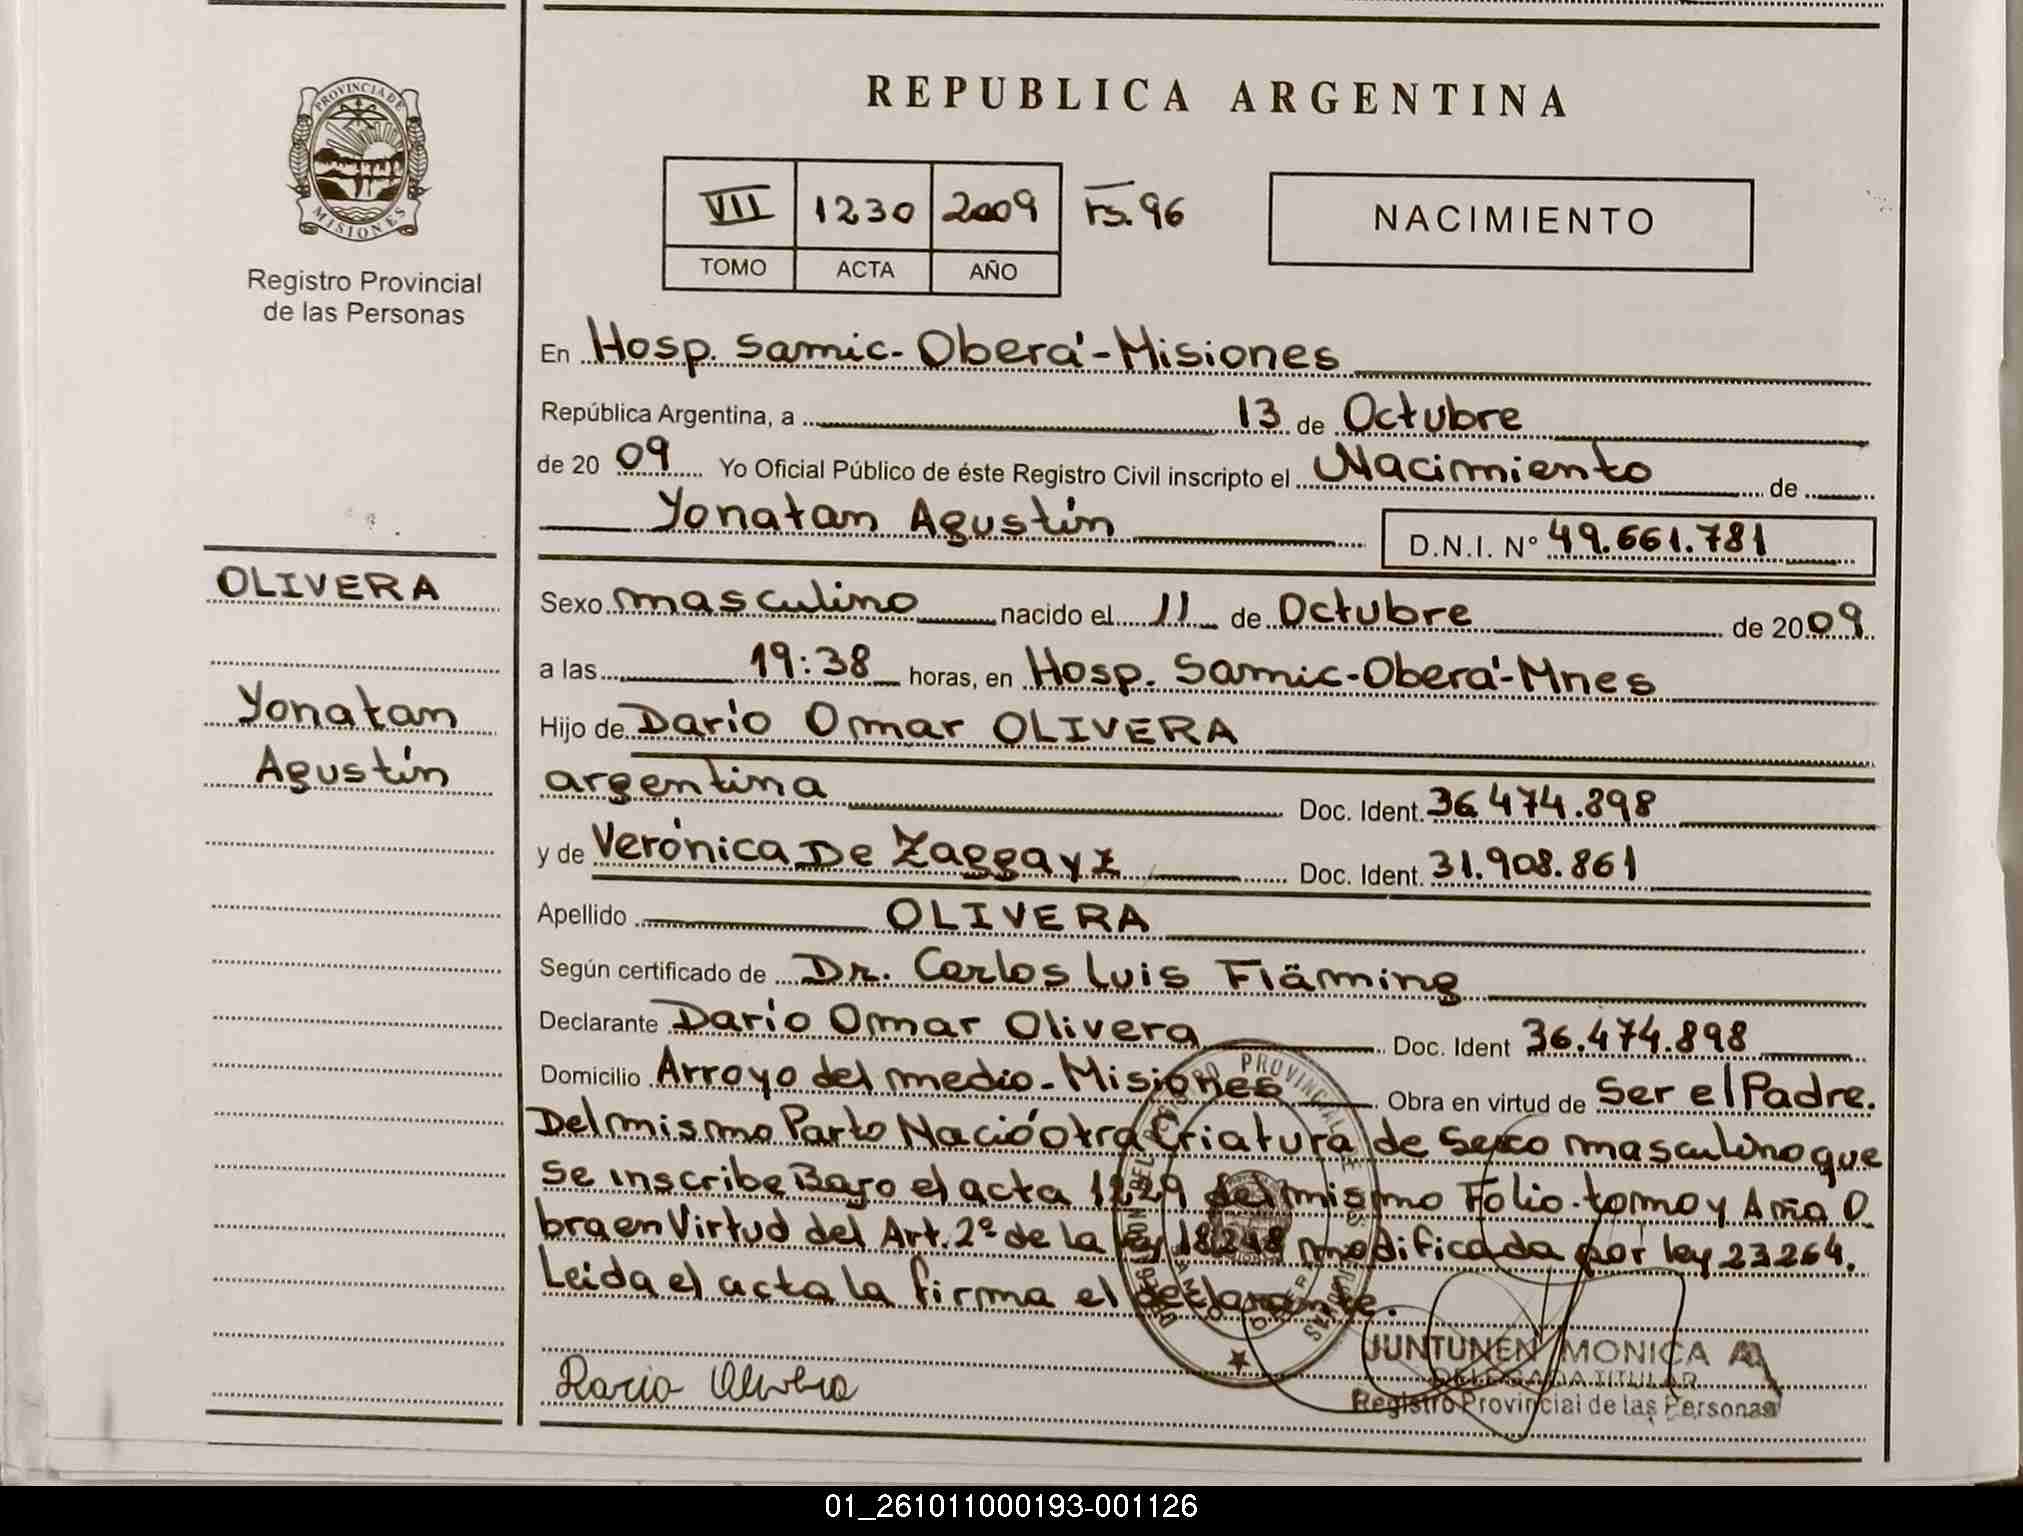 REPUBLICA ARGENTINA
PROVINCIA DE
MISIONES
Registro Provincial
de las Personas
VII 1230 2009 Fs. 96
TOMO ACTA AÑO
NACIMIENTO
En Hosp. Samic-Oberá-Misiones
República Argentina, a 13 de Octubre
de 2009 Yo Oficial Público de éste Registro Civil inscripto el Nacimiento de
Yonatan Agustín D.N.I. Nº 49.661.781
OLIVERA
Yonatan
Agustín
Sexo masculino nacido el 11 de Octubre de 2009
a las 19:38 horas, en Hosp. Samic-Oberá-Mnes
Hijo de Darío Omar OLIVERA
argentina Doc. Ident. 36.474.898
y de Verónica De Zaggayz Doc. Ident. 31.908.861
Apellido OLIVERA
Según certificado de Dr. Carlos Luis Fläming
Declarante Darío Omar Olivera Doc. Ident 36.474.898
Domicilio Arroyo del medio - Misiones Obra en virtud de Ser el Padre.
Del mismo Parto Nació otra Criatura de Sexo masculino que
se inscribe Bajo el acta 1229 del mismo Folio. tomo y Año O
bra en Virtud del Art. 2º de la ley 18248 modificada por ley 23264.
Leida el acta la firma el declarante.
Dario Olivera
JUNTUNEN MONICA A
DELEGADA TITULAR
Registro Provincial de las Personas
01_261011000193-001126